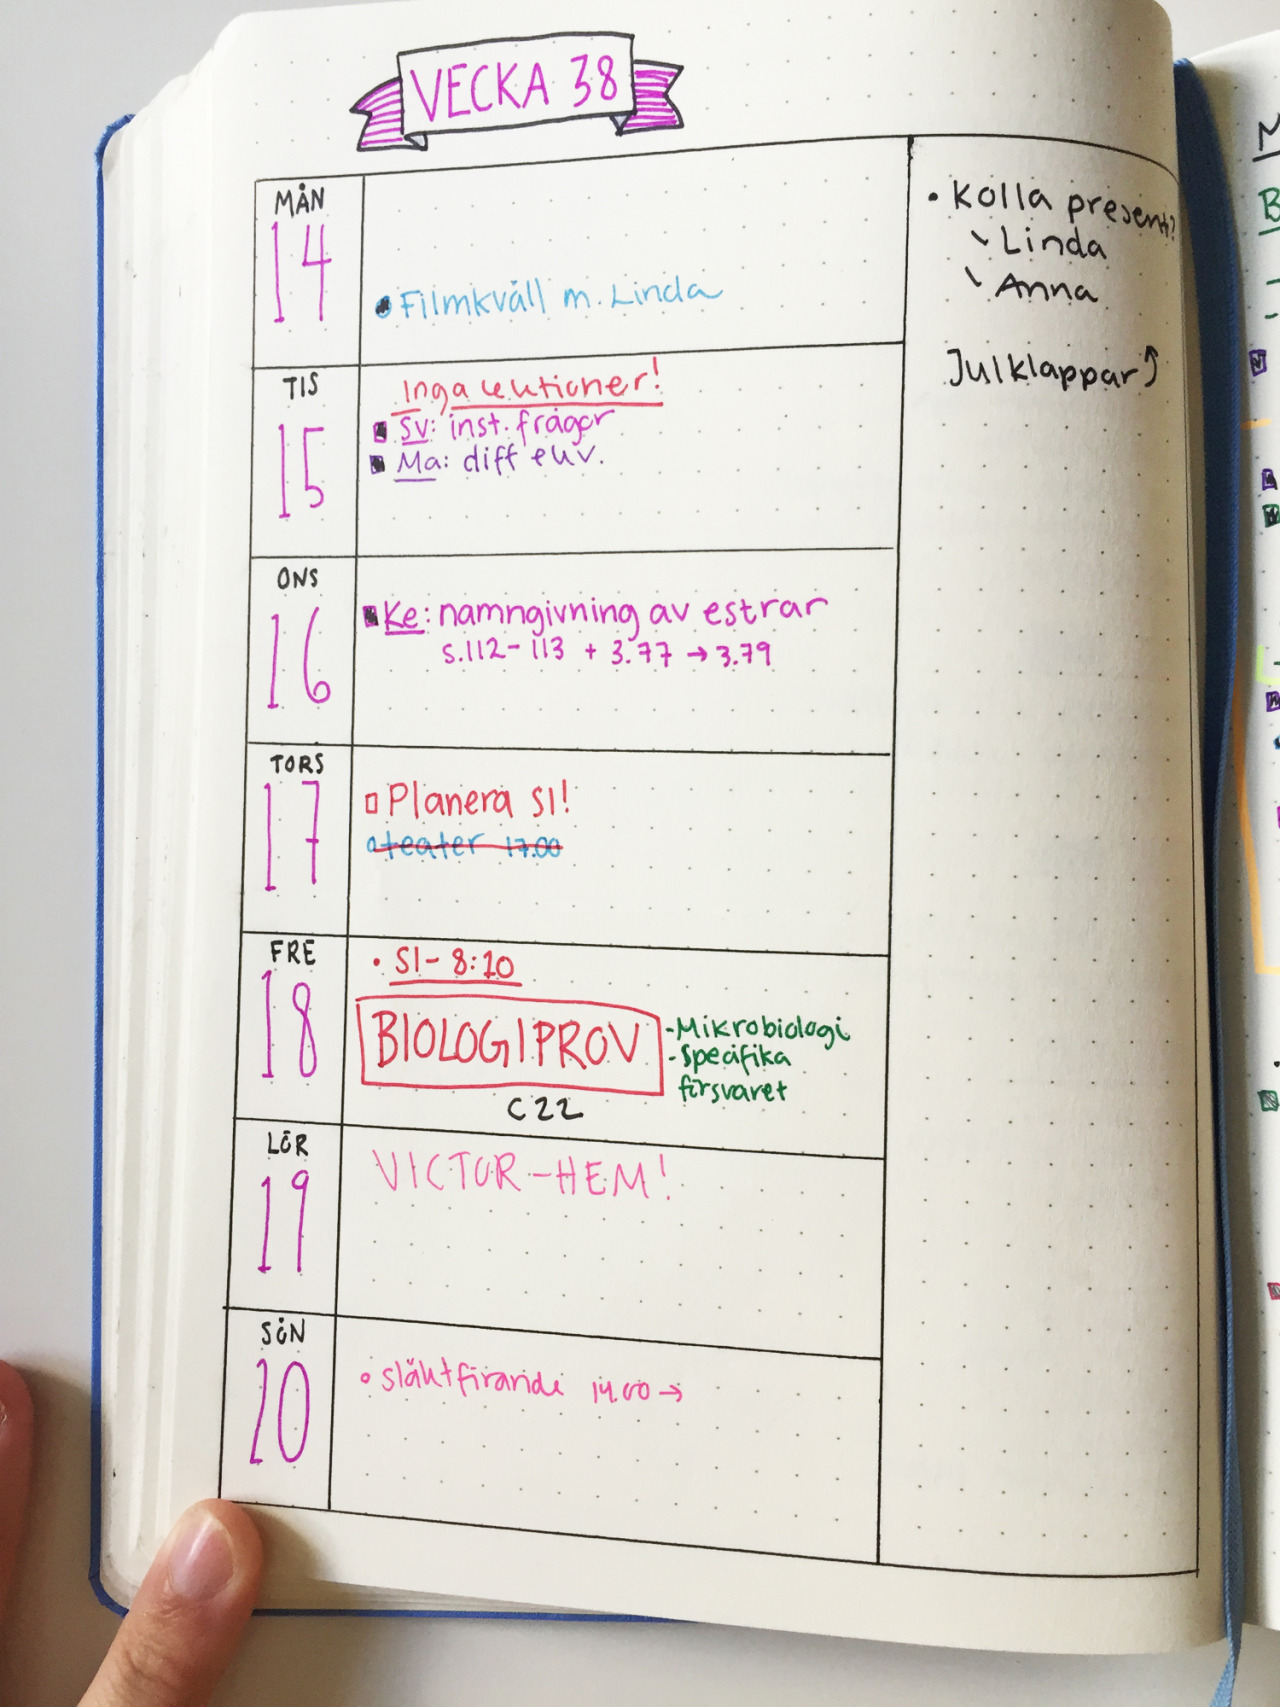 VECKA 38
MÅN
14
• Filmkväll m. Linda
TIS
15
Inga lektioner!
Sv: inst. frågor
Ma: diff ekv.
ONS
16
Ke: namngivning av estrar
s.112-113 + 3.77 → 3.79
TORS
17
Planera SI!
teater 17.00
FRE
18
• SI- 8:10
BIOLOGIPROV
C22
-Mikrobiologi
-Specifika
försvaret
LÖR
19
VICTOR-HEM!
SÖN
20
• släktfirande 14.00 →
• Kolla present?
Linda
Anna
Julklappar